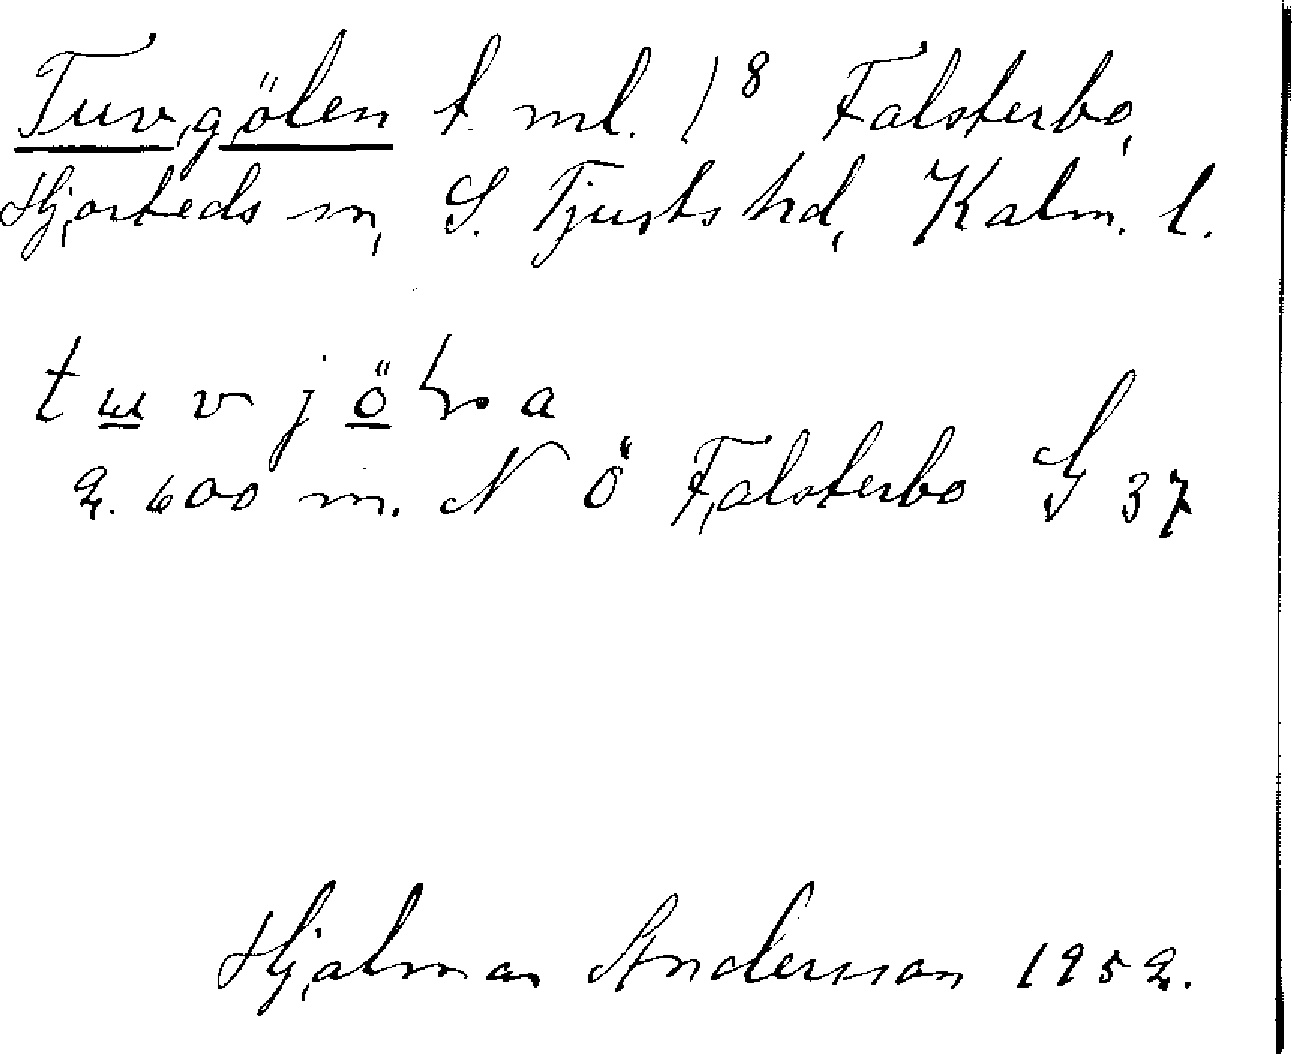 Tuvgölen t. ml. 1⁸ Falsterbo,
Hjorteds sn, S. Tjusts hd, Kalm. l.
2. 600 m. N Ö Falsterbo G 37
Hjalmar Andersson 1952.